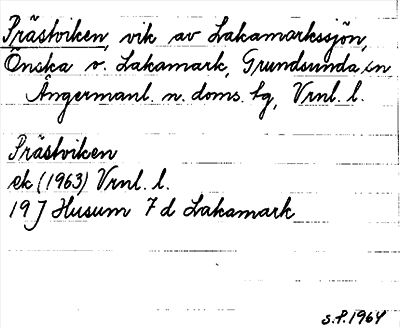 Prästviken, vik av Lakamarkssjön,
Önska o. Lakamark, Grundsunda sn
Ångermanl. n. doms. tg, Vrnl. l.
Prästviken
ek (1963) Vrnl. l.
19 J Husum 7 d Lakamark
S.P. 1964